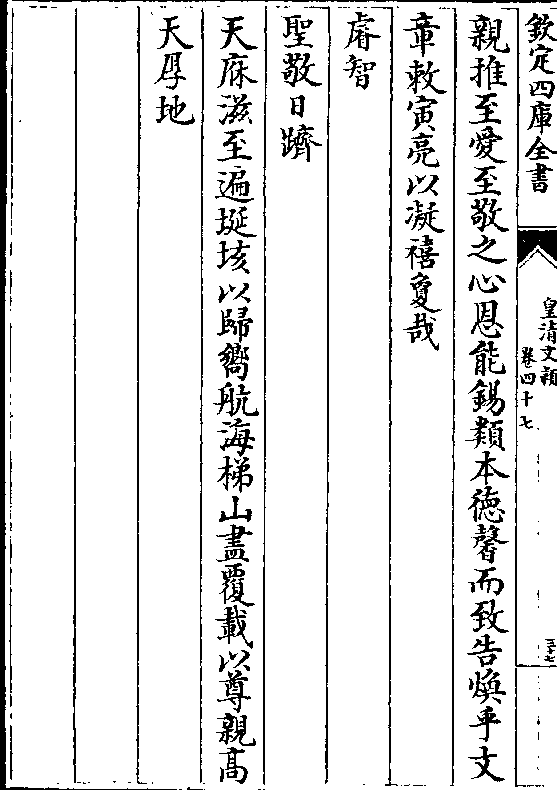 欽定四庫全書
皇清文穎
卷四十七
親推至愛至敬之心恩能錫類本德馨而致告煥乎文
章敕寅亮以凝禧敻哉
睿智
聖敬日躋
天庥滋至遍埏垓以歸嚮航海梯山盡覆載以尊親高
天厚地